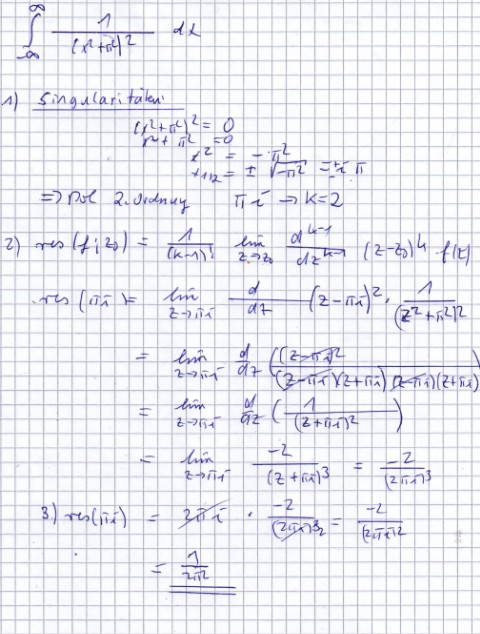 ∫_{-∞}^{∞} 1/(x²+π²)² dx
1) Singularitäten
(x²+π²)² = 0
x²+π² = 0
x² = -π²
x_{1,2} = ±√(-π²) = ±i π
=> Pol 2. Ordnung πi → k=2
2) res(f; z₀) = 1/(k-1)! lim_{z→z₀} d^{k-1}/dz^{k-1} (z-z₀)^k f(z)
res(πi) = lim_{z→πi} d/dz (z-πi)² · 1/(z²+π²)²
= lim_{z→πi} d/dz ((z-πi)²/((z-πi)(z+πi)(z-πi)(z+πi)))
= lim_{z→πi} d/dz (1/(z+πi)²)
= lim_{z→πi} -2/(z+πi)³ = -2/(2πi)³
3) res(πi) = 2πi · -2/(2πi)³₂ = -2/(2πi)²
= 1/2π²